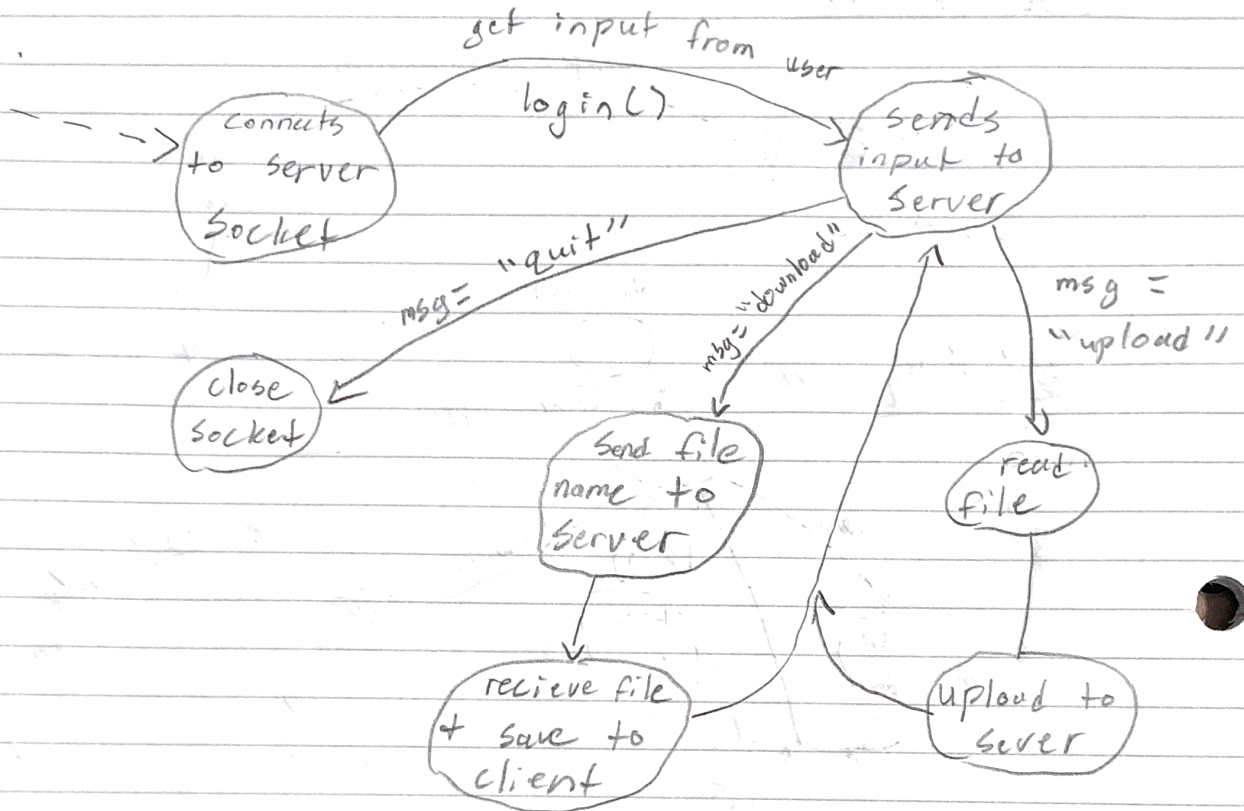 get input from user
login()
connects
to server
socket
sends
input to
server
msg = "quit"
msg = "download"
msg =
"upload"
close
socket
send file
name to
server
read
file
recieve file
+ save to
client
upload to
sever